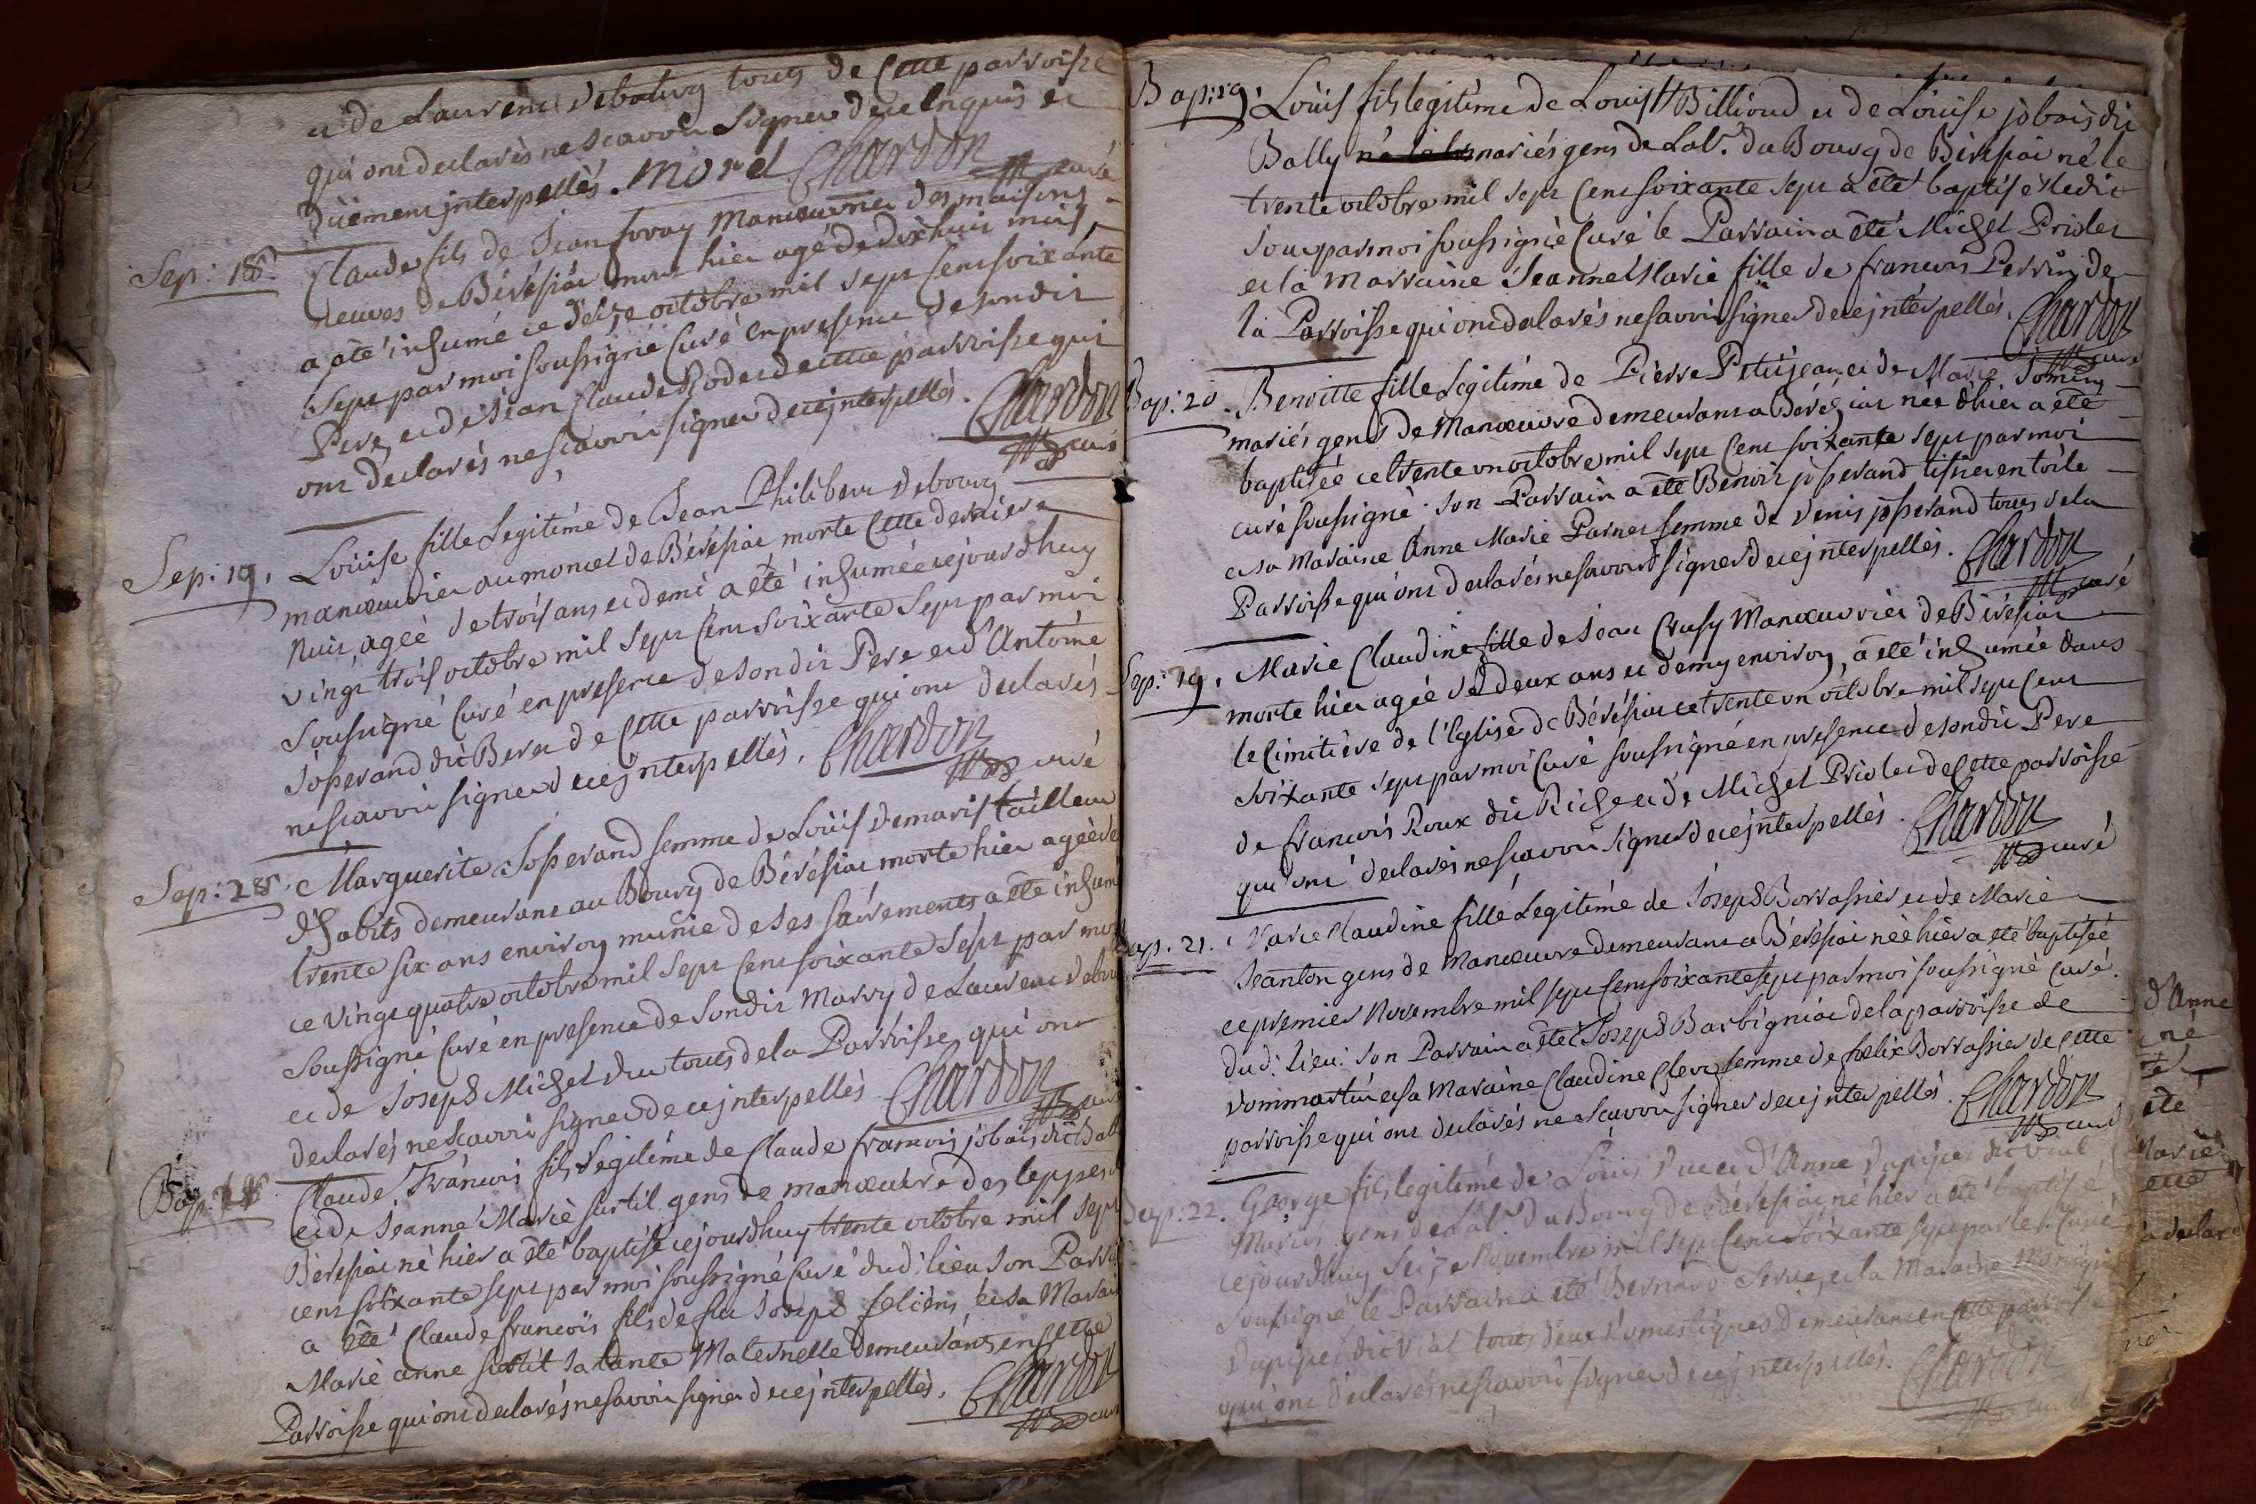 et de Laurent debourg tous de Cette parroisse
qui ont declarés ne scavoir signer de ce enquis et
düement interpellés. Morel Chardon curé
Sep: 18. Claude fils de Jean Manoeuvrier des maisons
neuves de Béréziat mort hier agé de dixhuit mois
a été inhumé ce seize octobre mil sept cent soixante
sept par moi soussigné Curé en presence de sondit
Pere, et de Jean Claude Rodet de cette parroisse qui
ont declarés ne scavoir signer de ce interpellés. Chardon
curé
Sep: 19. Loüise fille Legitime de Jean Philibert debourg
manoeuvrier au moncel de Béréziat morte cette derniere
nuit, agée de trois ans et demi a été inhumée cejourdhuy
vingt trois octobre mil sept cent soixante sept par moi
soussigné Curé en presence de sondit Pere et d'Antoine
Josserand dit Beret de Cette parroisse qui ont declarés
ne scavoir signer de ce interpellés. Chardon
curé
Sep: 28. Marguerite Josserand femme de Loüis demaris tailleur
d'habits demeurant au Bourg de Béréziat morte hier agée de
trente six ans environ munie de ses sacrements a été inhumée
ce vingt quatre octobre mil sept cent soixante sept par moi
soussigné Curé en presence de sondit Marry de Laurent debourg
et de Joseph Michel tous de la Parroisse qui ont
declarés ne scavoir signer de ce interpellés Chardon
curé
Bap: 18 Claude François fils Legitime de Claude francois jobais dit Bally
et de Jeanne Marie surtil gens de manoeuvre des leppes
Béréziat né hier a été baptisé cejourdhuy trente octobre mil sept
cent soixante sept par moi soussigné Curé dud: lieu son Parrain
a été Claude francois fils de feu Joseph felicins et sa Maraine
Marie anne surtil sa tante Maternelle demeurants en cette
Parroisse qui ont declarés ne savoir signer de ce interpellés. Chardon
curé
Bap: 19. Loüis fils legitime de Louis Billioud et de Loüise jobais dit
Bally mariés gens de Lab.r du Bourg de Béréziat né le
trente octobre mil sept cent soixante sept a été baptisé ledit
jour par moi soussigné Curé le Parrain a été Michel Priolet
et la Marraine Jeanne Marie fille de francois Perrin de
la Parroisse qui ont declarés ne savoir signer de ce interpellés. Chardon
curé
Bap: 20. Benoitte fille Legitime de Pierre Petitjean et de Marie
mariés gens de Manoeuvre demeurans a Béréziat née d'hier a été
baptisée ce trente un octobre mil sept cent soixante sept par moi
curé soussigné. son Parrain a été Benoit josserand tissier en toile
et sa Maraine Anne Marie Parnet femme de Denis josserand tous de la
Parroisse qui ont declarés ne savoir signer de ce interpellés. Chardon
curé
Sep: 29. Marie Claudine fille de Jean Crusy Manoeuvrier de Béréziat
morte hier agée de deux ans et demy environ, a été inhumée dans
le Cimitiere de l'Eglise de Béréziat ce trente un octobre mil sept cent
soixante sept par moi Curé soussigné en presence de sondit Pere
de francois Roux dit Riche et de Michel Priolet de Cette parroisse
qui ont declarés ne scavoir signer de ce interpellés. Chardon
curé
Bap: 21. Marie Claudine fille Legitime de Joseph Borrassier et de Marie
Jeanton gens de Manoeuvre demeurans a Béréziat née hier a été baptisée
ce premier Novembre mil sept cent soixante sept par moi soussigné curé
dud: lieu: son Parrain a été Joseph Barbigniat de la parroisse de
Dommartin et sa Maraine Claudine Clerc femme de foelix Borrassier de Cette
parroisse qui ont declarés ne scavoir signer de ce interpellés. Chardon
curé
Bap: 22. George fils legitime de Loüis et d'Anne Dupupet dit vial
Mariés gens de Lab.r du Bourg de Béréziat né hier a été baptisé
cejourdhuy seize Novembre mil sept cent soixante sept par le Curé
soussigné le Parrain a été Bernard et la Maraine
Dupupet dit Vial tous deux domestiques demeurans en Cette parroisse
qui ont declarés ne scavoir signer de ce interpellés. Chardon
curé
d'Anne
né
été
Marie
cette
declaré